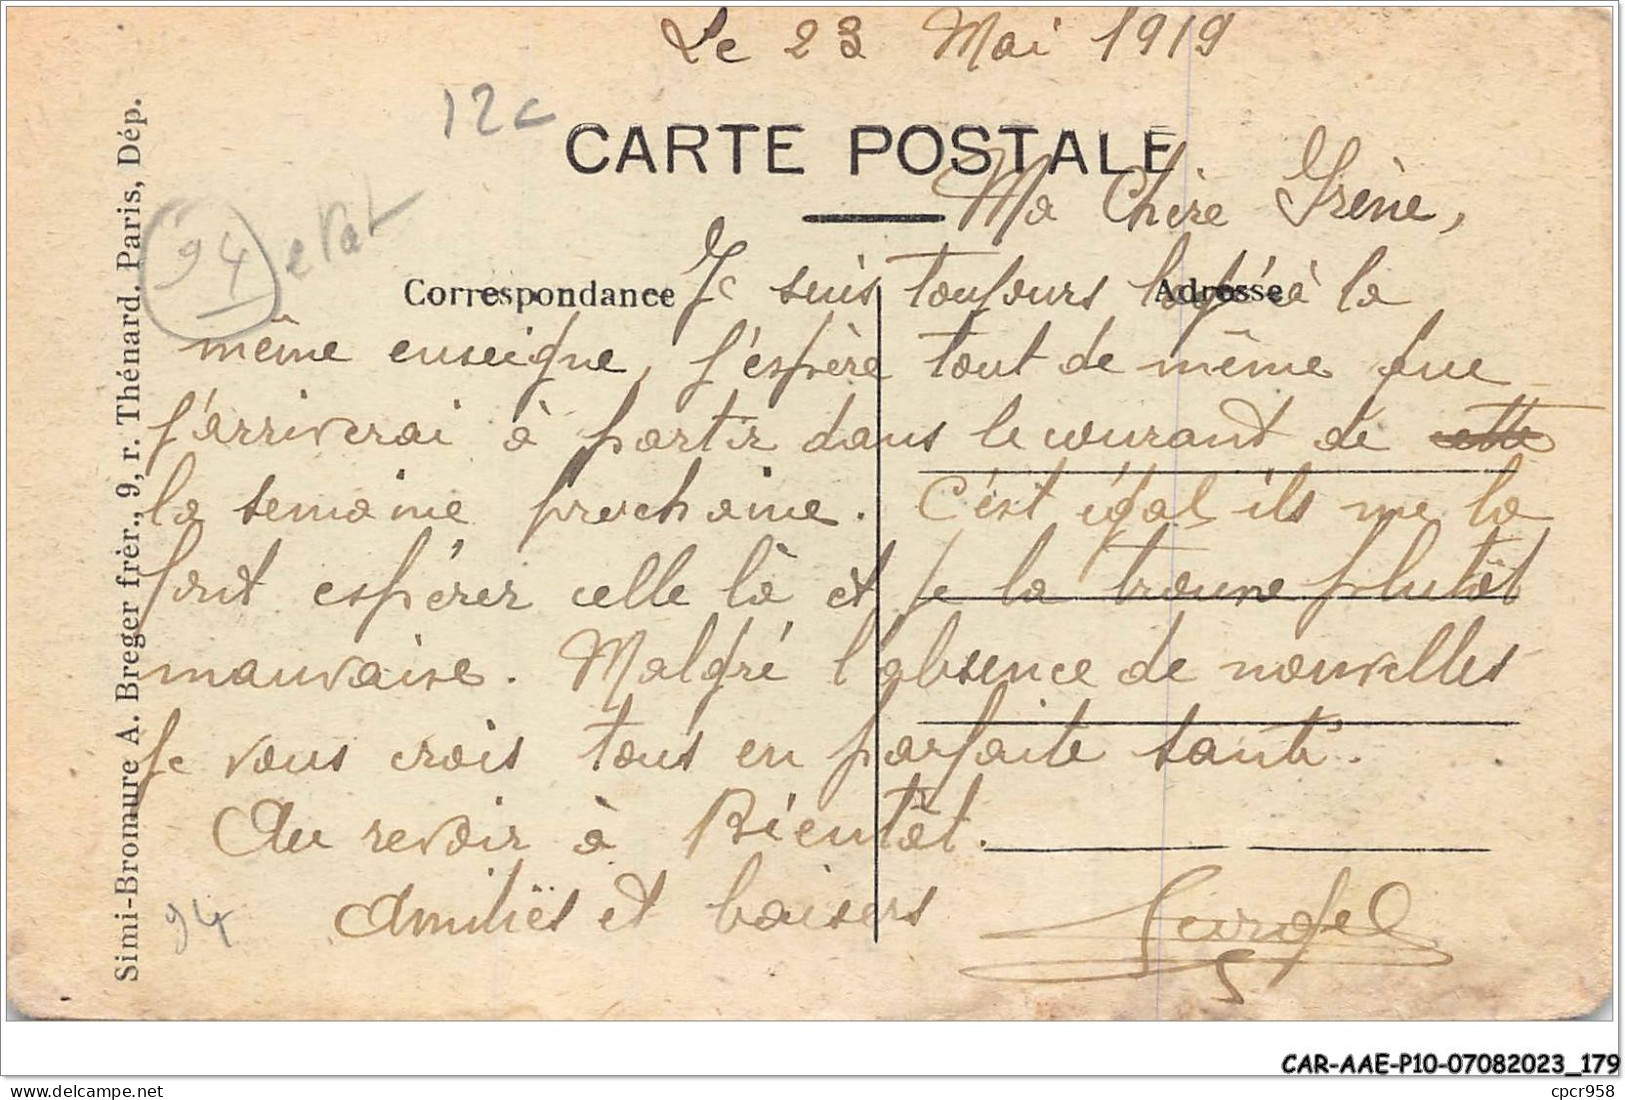 Le 23 Mai 1919
12c
CARTE POSTALE
Ma Chère Irène,
94
Correspondance
Adresse
Je suis toujours logé à la
même enseigne, j'espère tout de même que
j'arriverai à partir dans le courant de cette
la semaine prochaine. C'est égal ils me la
font espérer celle là et je la trouve plutôt
mauvaise. Malgré l'absence de nouvelles
je vous crois tous en parfaite santé.
Au revoir à Bientôt.
Amitiës et baisers
94
Simi-Bromure A. Breger frèr., 9, r. Thénard, Paris, Dép.
CAR-AAE-P10-07082023_179
cpcr958